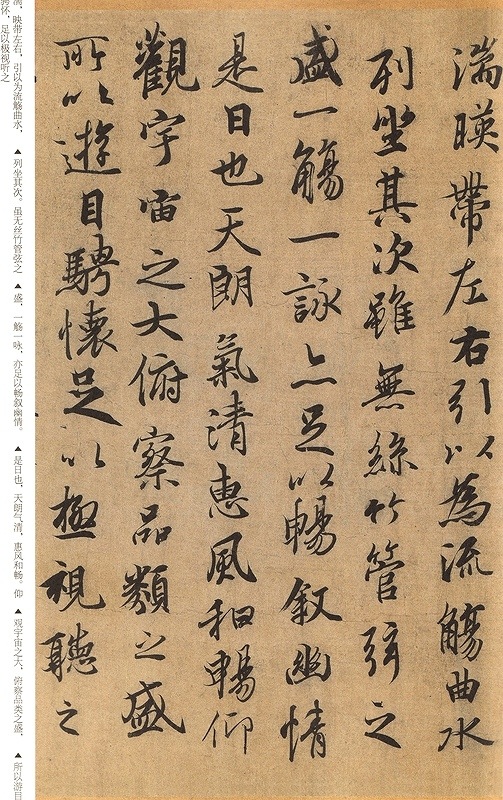 湍暎帶左右引以為流觴曲水
列坐其次雖無絲竹管弦之
盛一觴一詠亦足以暢叙幽情
是日也天朗氣清惠風和暢仰
觀宇宙之大俯察品類之盛
所以遊目騁懷足以極視聽之
湍，映带左右，引以为流觞曲水，
▲列坐其次。虽无丝竹管弦之
▲盛，一觞一咏，亦足以畅叙幽情。
▲是日也，天朗气清，惠风和畅。仰
▲观宇宙之大，俯察品类之盛，
▲所以游目
骋怀，足以极视听之